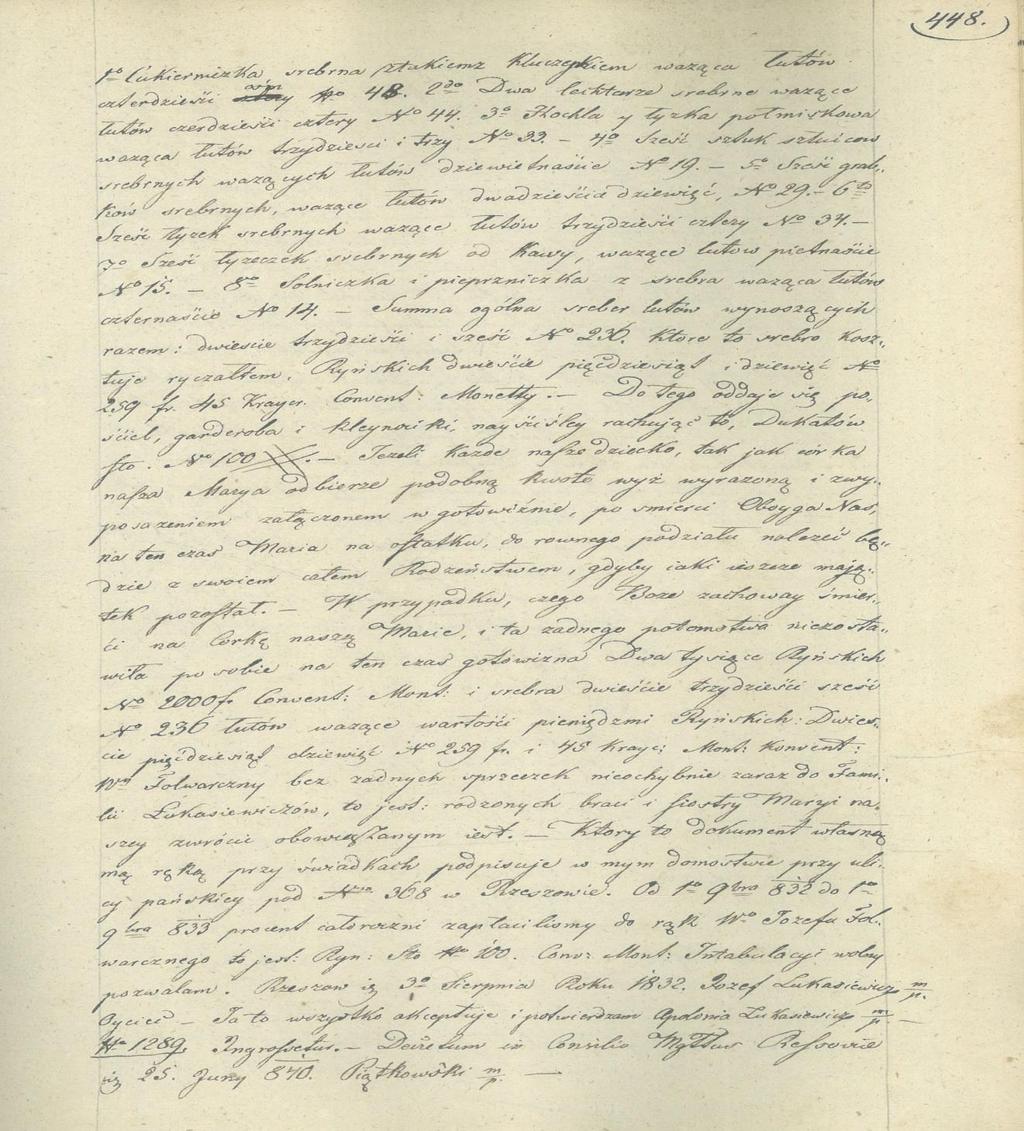 448.
1mo Cukierniczka srebrna z takiemz kluczykiem ważąca łutów
czterdzieści osm No 48. 2do Dwa lichtarze srebrne ważące
łutów czterdzieści cztery No 44. 3o Chochla y łyżka półmiskowa
ważąca łutów trzydzieści i trzy No 33. – 4o Sześć sztuk sztućcow
srebrnych ważących łutów dziewietnaście No 19. – 5o Sześć grab„
kow srebrnych, ważące łutów dwadzieścia dziewięć, No 29. – 6to
Sześć łyzek srebrnych ważące łutów trzydzieści cztery No 34. –
7o Sześć łyzeczek srebrnych od Kawy, ważące łutow pietnaście
No 15. – 8vo Solniczka i pieprzniczka z srebra ważąca łutów
czternaście No 14. – Summa ogólna sreber łutów wynoszących
razem: dwieście trzydzieści i sześć No 236. które to srebro kosz„
tuje ryczałtem, Ryńskich dwieście pięćdziesiąt i dziewięć No
259 fr. 45 Krayer. Convent: Monetty. – Do tego oddaje się po„
ściel, garderoba i kleynociki, nayściśley rachując to, Dukatów
sto. No 100 – Jezeli kazde nasze dziecko, tak jak córka
nasza Marya odbierze podobną kwotę wyż wyrażoną i z wy„
posażeniem załączonem w gotowiźnie, po smierci Oboyga Nas,
na ten czas Maria na ostatku, do rownego podziału nalezeć bę„
dzie z swoiem całem Rodzeństwem, gdyby iaki ieszcze mają„
tek pozostał. – W przypadku, czego Boze zachoway śmier„
ci na Córkę naszą Marie, i ta zadnego potomstwa niezosta„
wiła po sobie na ten czas gotowizna Dwa tysiące Ryńskich
No 2000 f. Convent: Mont: i srebra dwieście trzydzieści sześć
No 236 łutów ważące wartości pieniędzmi Ryńskich: Dwieś„
cie pięćdziesiąt dziewięć No 259 fr. i 45 Krayc: Mont: Konvent:
Wny Folwarczny bez zadnych sprzeczek nieochybnie zaraz do Fami„
lii Łukasiewiczów, to jest: rodzonych braci i siostry Maryi na„
szey zwrócić obowiązanym iest. – Ktory to dokument własną
mą ręką przy świadkach podpisuje w mym domostwie przy uli„
cy pańskiey pod Nro 368 w Rzeszowie. Od 1o 9bra 832 do 1o
9bra 833 procent całoroczni zapłaciliśmy do rąk Wo Jozefa Fol„
warcznego to jest: Ryn: Sto No 100. Conv: Mont: Intabulacyi wolny
pozwalam. Rzeszow d. 3o Sierpnia Roku 1832. Jozef Łukasiewicz m/p.
Oyciec – Ja to wszystko akceptuje i potwierdzam Apolonia Łukasiewicz m/p. –
No 1289. Ingrossetur. – Decretum in Consilio Mgttus Ressoviæ
d. 25. Juny 840. Piątkowski m/p. –